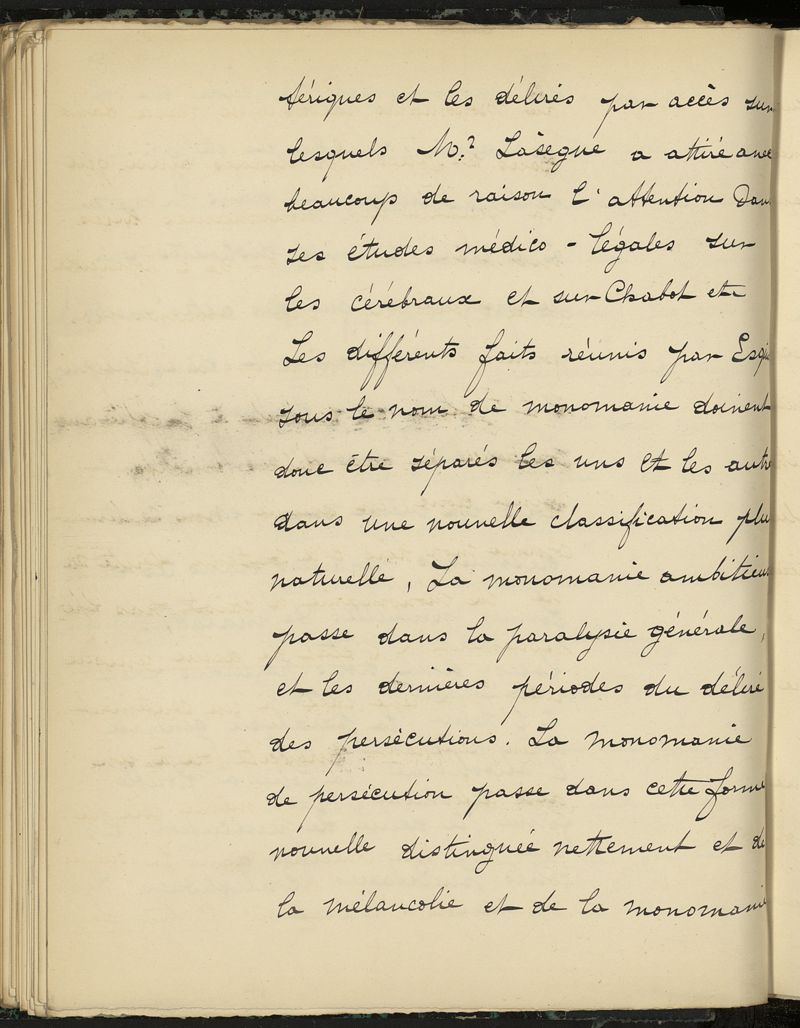 tériques et les délires par accès sur
lesquels Mr. Lasègue a attiré avec
beaucoup de raison l'attention Dans
ses études médico-légales sur
les cérébraux et sur Chabot etc
Les différents faits réunis par Esqui
sous le nom de monomanie doivent
donc être séparés les uns et les autre
dans une nouvelle classification plu
naturelle, La monomanie ambitieus
passe dans la paralysie générale,
et les dernières périodes du délire
des persécutions. La monomanie
de persécution passe dans cette forme
nouvelle distinguée nettement et de
la mélancolie et de la monomanie